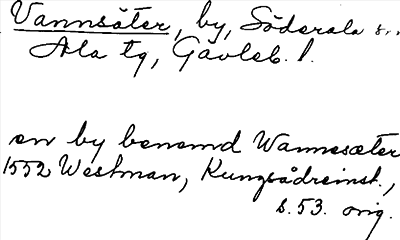 Vannsäter, by, Söderala s..
Ala tg, Gävleb. l.
en by benemd Wannesæter
1552 Westman, Kungsådreinst.,
s. 53. orig.